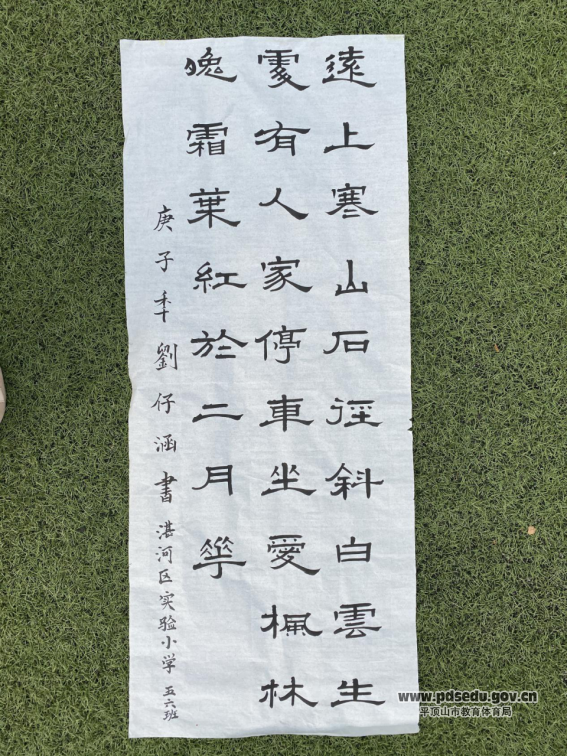 遠上寒山石徑斜白雲生
處有人家停車坐愛楓林
晚霜葉紅於二月花
庚子年劉仔涵書湛河区实验小学五六班
www.pdsedu.gov.cn
平顶山市教育体育局